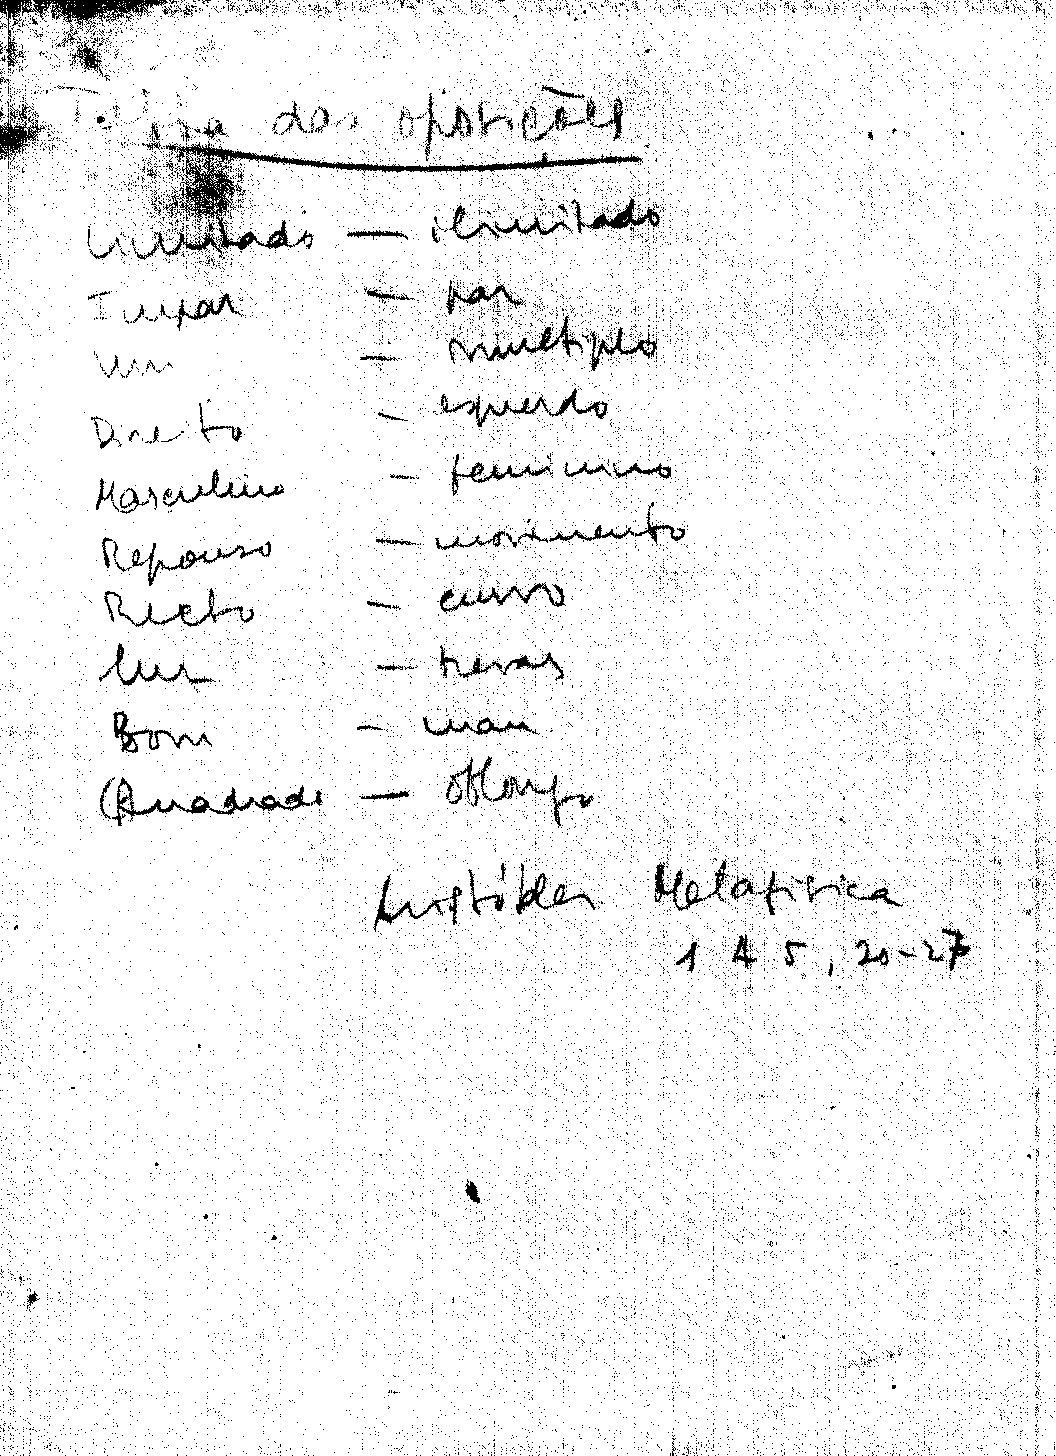 das oposições
Limitado — ilimitado
Impar — par
Um — multiplo
Direito — esquerdo
Masculino — feminino
Repouso — movimento
Recto — curvo
Luz — trevas
Bom — mau
Quadrado — oblongo
Aristóteles Metafisica
1 A 5, 20-27